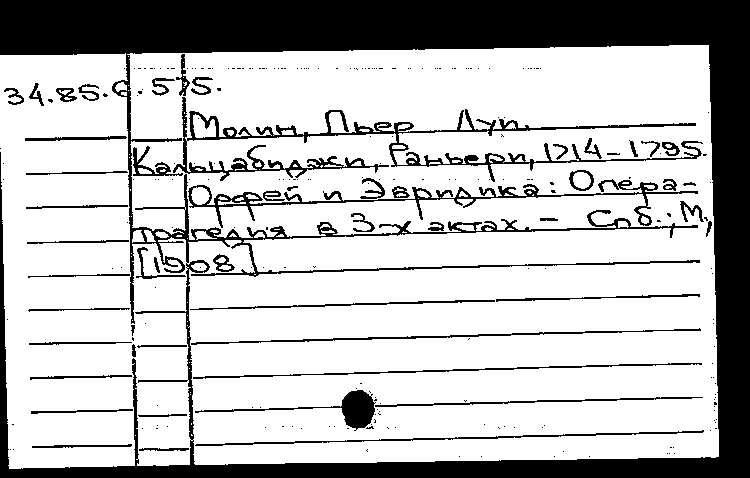 34.85.6.575.
Молин, Пьер Луи.
Кальцабиджи, Раньери, 1714-1795.
Орфей и Эвридика: Опера-
трагедия в 3-х актах. - Спб.; М.,
[1908].